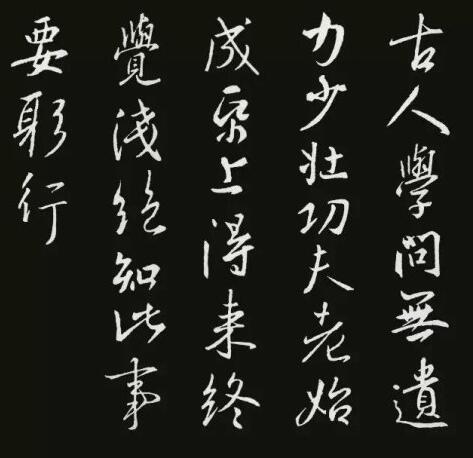 古人學問無遺
力少壯功夫老始
成紙上得來終
覺淺絕知此事
要躬行